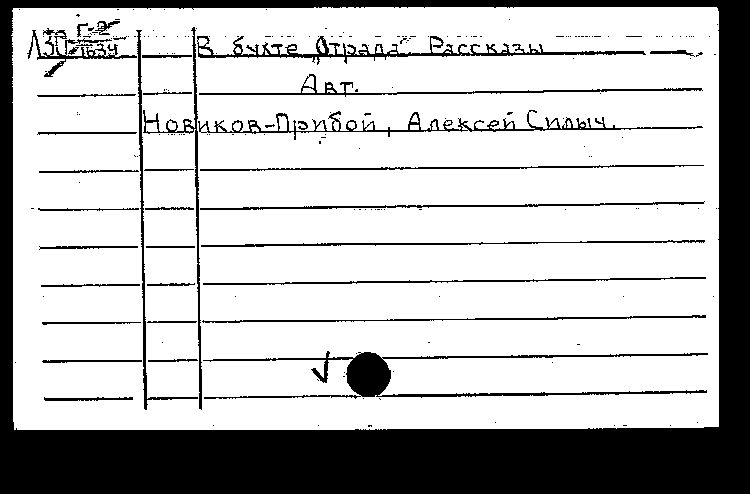 Л30 Г-2/1634 В бухте „Отрада". Рассказы
Авт.
Новиков-Прибой, Алексей Силыч.